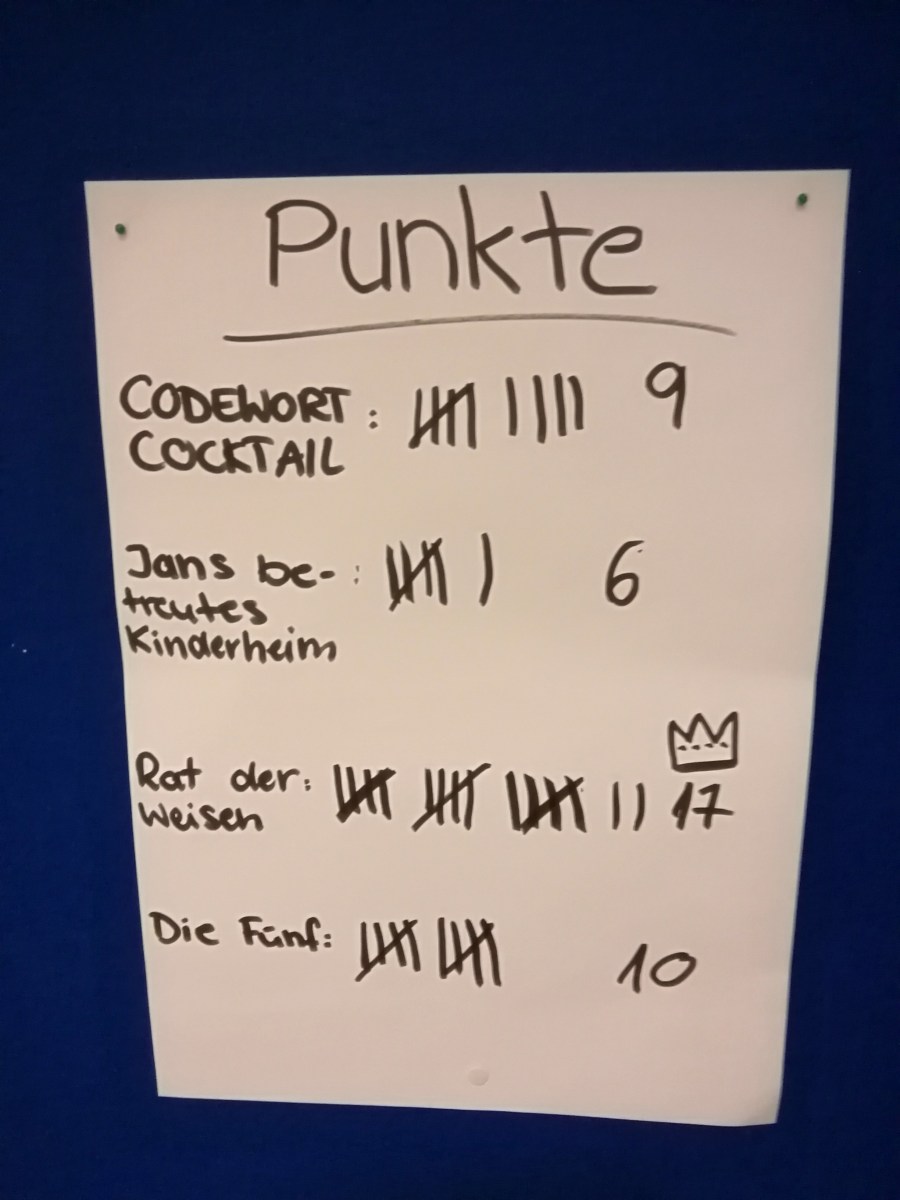 Punkte
CODEWORT : 9
COCKTAIL
Jans be- : 6
treutes
Kinderheim
Rat der: 17
Weisen
Die Fünf: 10